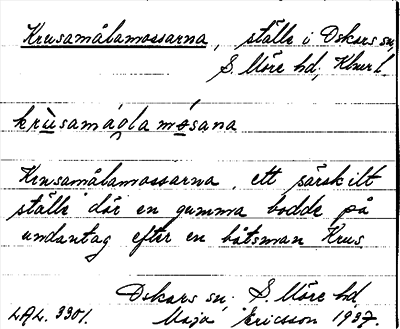 Krusamålamossarna, ställe i Oskars sn,
S. Möre hd, Kbarl.
krùsamágla mósana
Krusamålamossarna, ett särskilt
ställe där en gumma bodde på
undantag efter en båtsman Krus.
Oskars sn, S. Möre hd,
LAL. 3301. Maja Ericsson 1937.